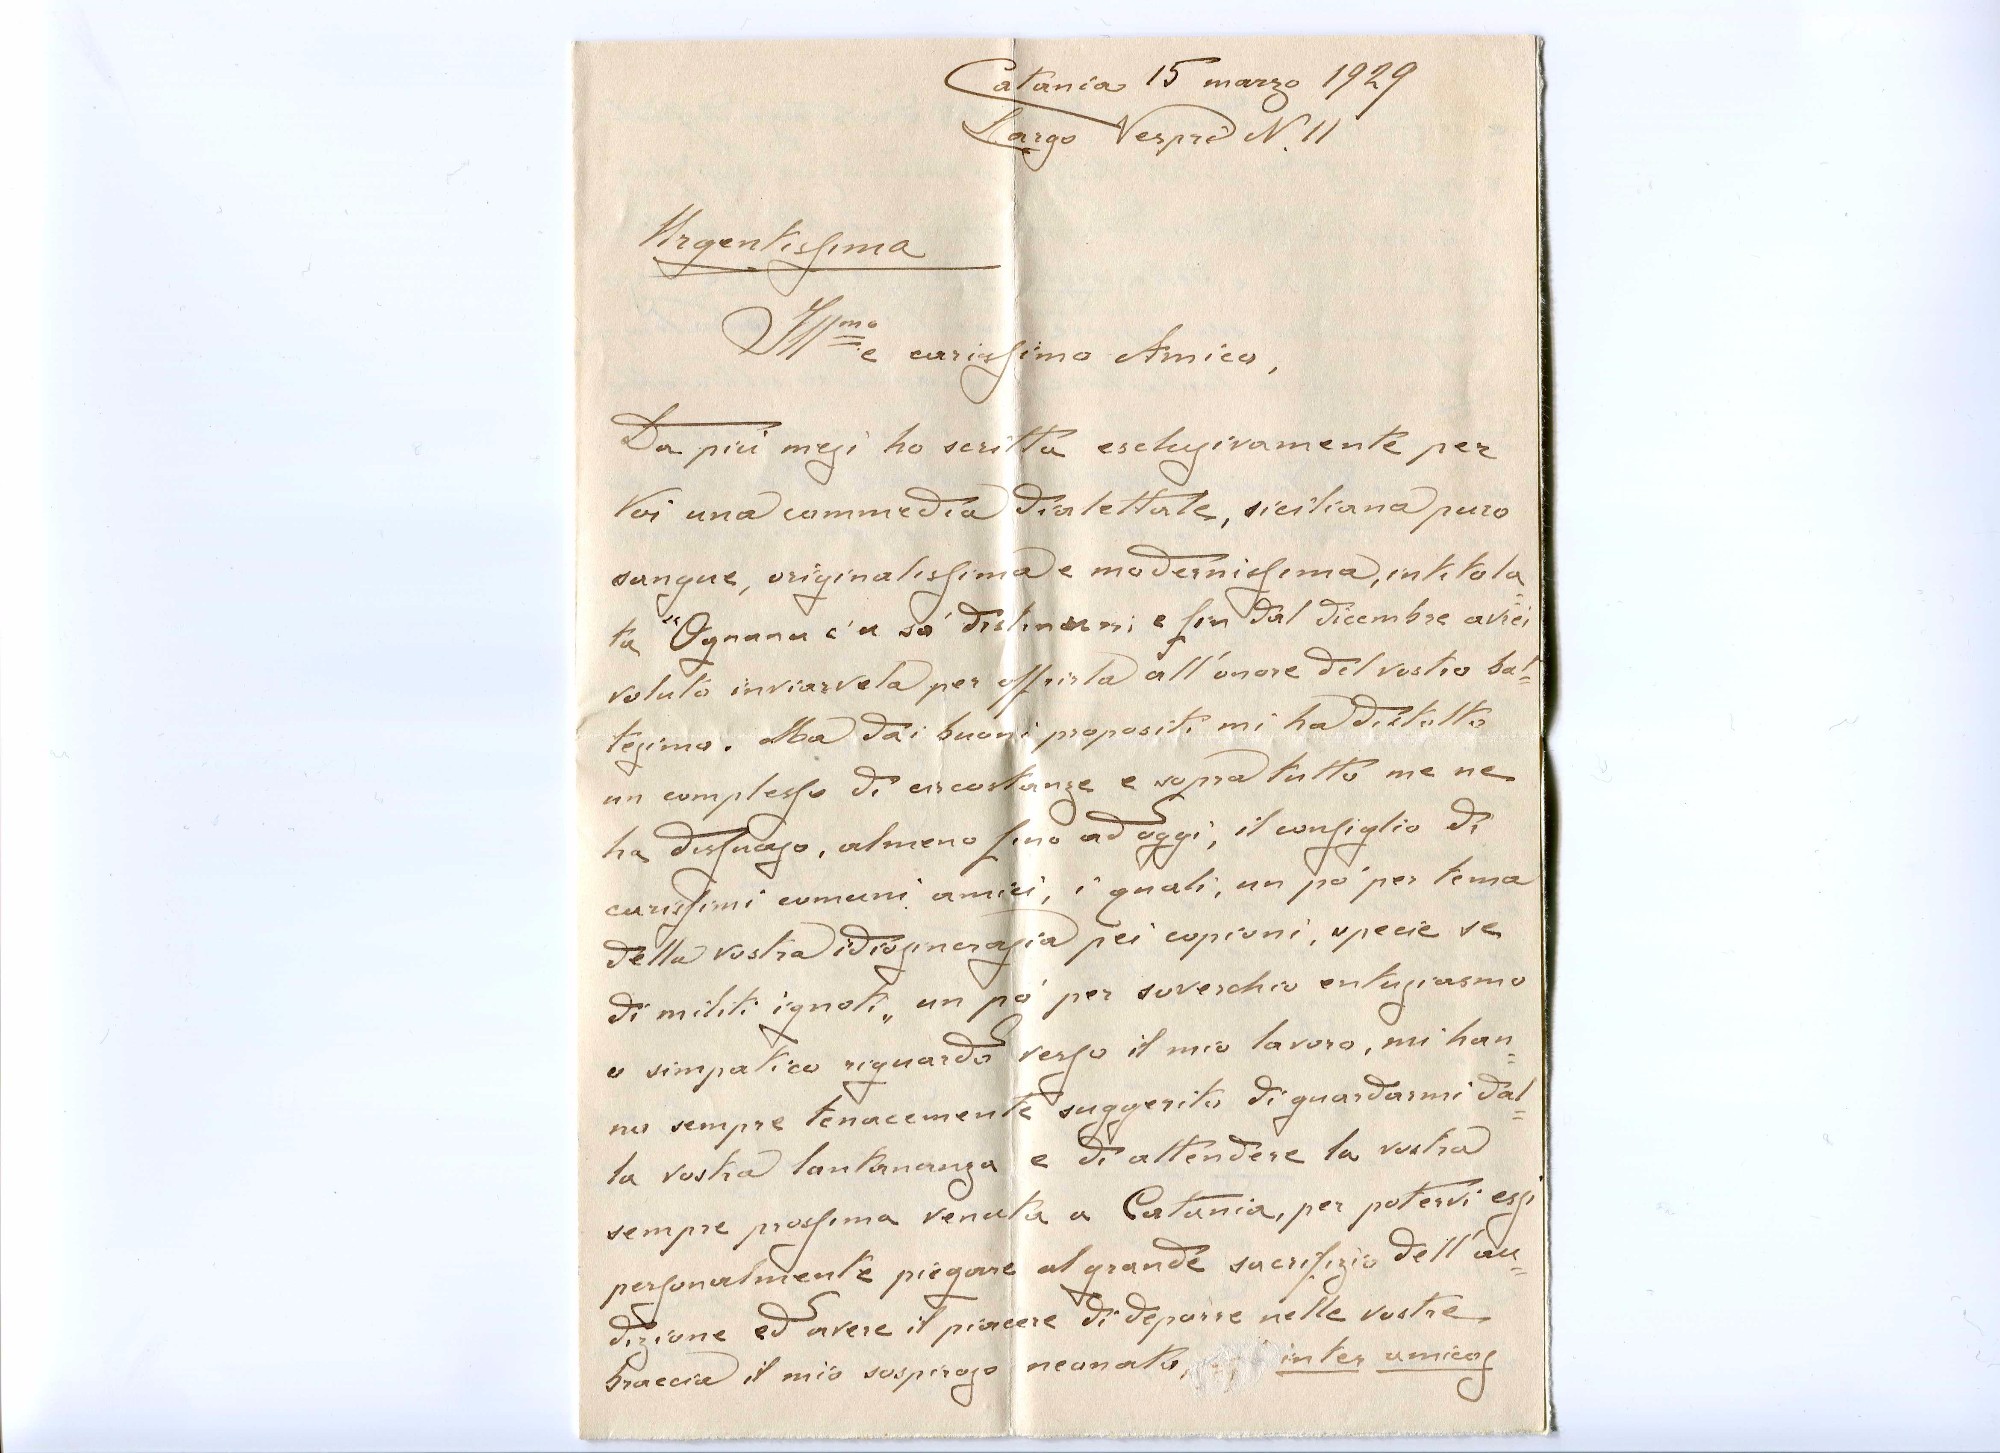 Catania 15 marzo 1929
Largo Vespri N. 11
Urgentissima
Ill.mo e carissimo Amico,
Da più mesi ho scritta esclusivamente per
Voi una commedia dialettale, siciliana puro
sangue, originalissima e modernissima, intitola=
ta "Ognunu c'u so' distinu" e fin dal dicembre avrei
voluto inviarvela per offrirla all'onore del vostro bat=
tesimo. Ma dai buoni propositi mi ha distolto
un complesso di circostanze e sopra tutto me ne
ha dissuaso, almeno fino ad oggi, il consiglio di
carissimi comuni amici, i quali, un po' per tema
della vostra idiosincrasia pei copioni, specie se
di militi ignoti, un po' per soverchio entusiasmo
e simpatico riguardo verso il mio lavoro, mi han=
no sempre tenacemente suggerito di guardarmi dal=
la vostra lontananza e di attendere la vostra
sempre prossima venuta a Catania, per potervi essi
personalmente piegare al grande sacrifizio dell'au=
dizione ed avere il piacere di deporre nelle vostre
braccia il mio sospiroso neonato, inter amicos